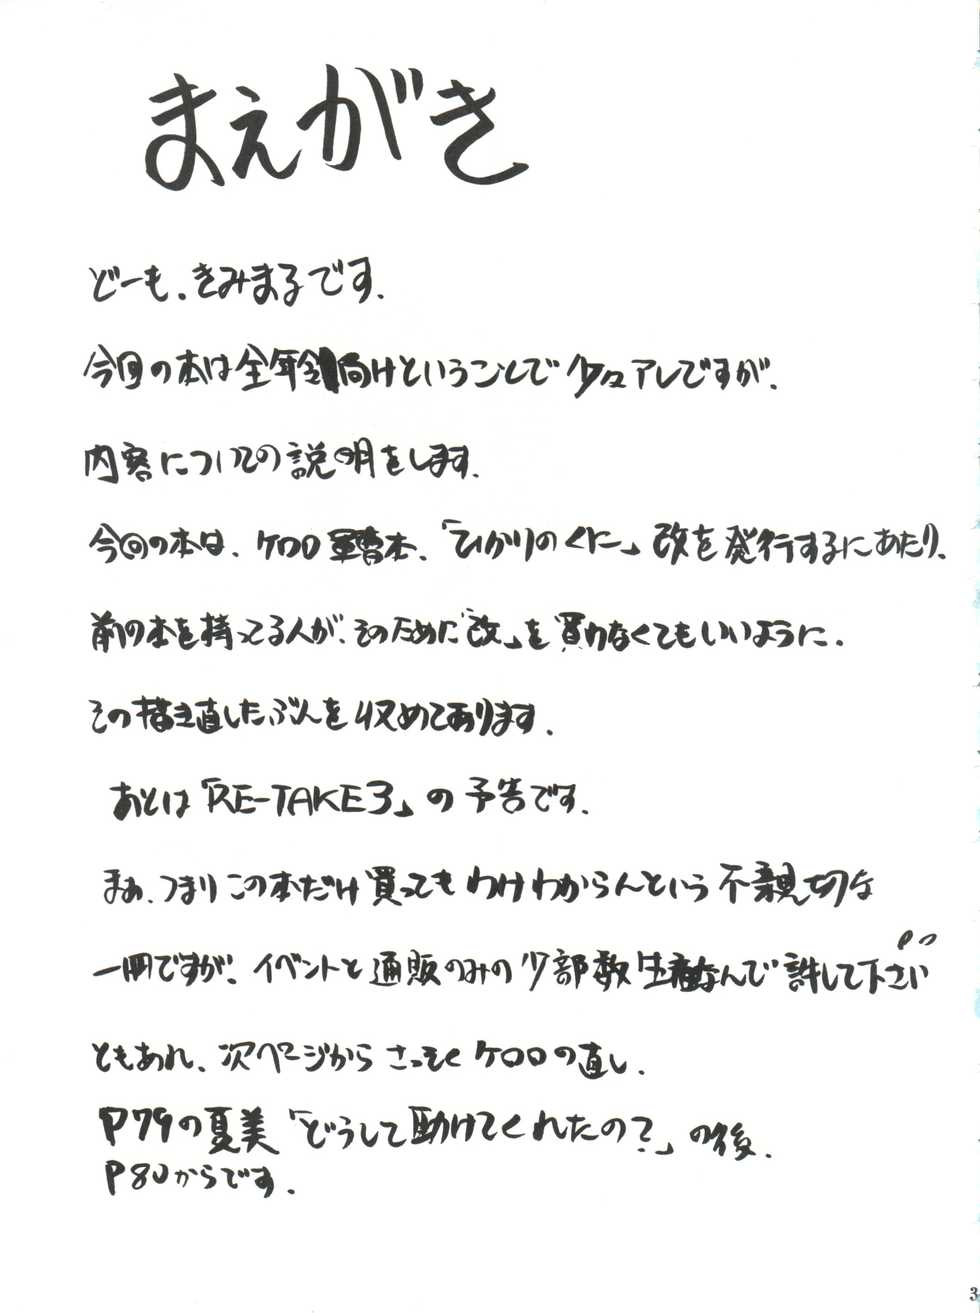 まえがき
どーも、きみまるです.
今回の本は全年齢向けということで少々アレですが、
内容についての説明をします.
今回の本は、ケロロ軍曹本、「ひかりのくに」改を発行するにあたり、
前の本を持ってる人が、そのために「改」を買わなくてもいいように.
その描き直したぶんを収めてあります.
あとは「RE-TAKE3」の予告です.
まぁ、つまりこの本だけ買ってもわけわからんという不親切な
一冊ですが、イベントと通販のみの少部数生産なんで許して下さいっ
ともあれ、次ページからさっそくケロロの直し.
P79の夏美「どうして助けてくれたの?」の後.
P80からです.
3